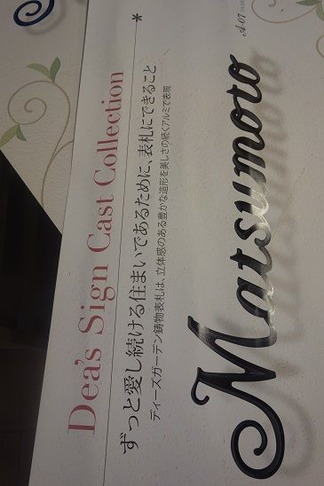 Dea's Sign Cast Collection
ずっと愛し続ける住まいであるために、表札にできること
ディーズガーデン鋳物表札は、立体感のある豊かな造形を美しさの続くアルミで表現
Matsumoto
A-07